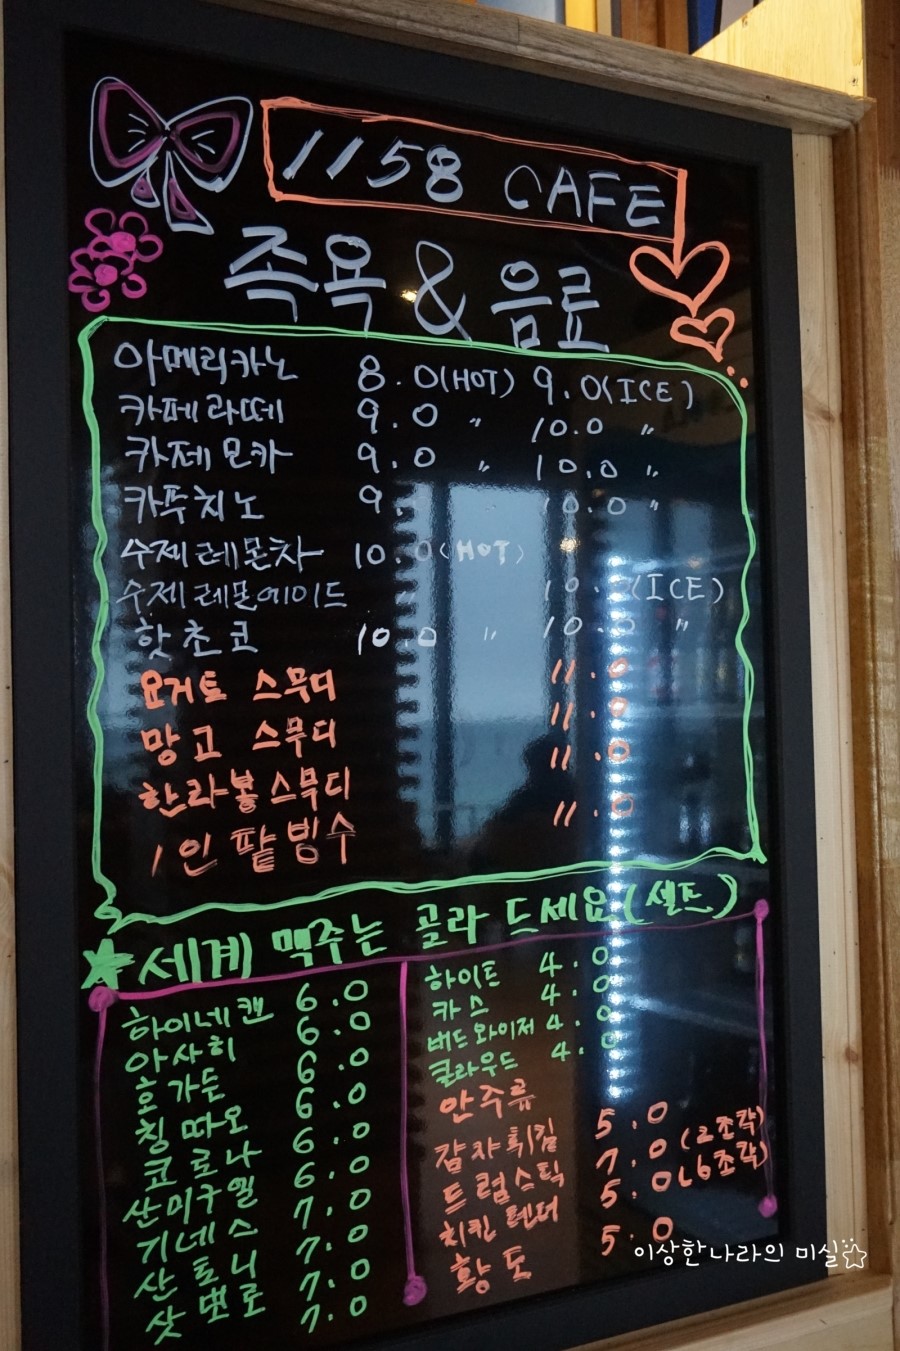 1158 CAFE
족욕 & 음료
아메리카노 8.0(HOT) 9.0(ICE)
카페라떼 9.0 〃 10.0 〃
카페모카 9.0 〃 10.0 〃
카푸치노 9. 10.0 〃
수제레몬차 10.0(HOT)
수제레몬에이드 10.0(ICE)
핫초코 10.0 〃 10.0 〃
요거트 스무디 11.0
망고 스무디 11.0
한라봉스무디 11.0
1인 팥빙수 11.0
★세계 맥주는 골라 드세요(셀프)
하이네켄 6.0
아사히 6.0
호가든 6.0
칭따오 6.0
코로나 6.0
산미구엘 6.0
기네스 7.0
산토니 7.0
삿뽀로 7.0
7.0
하이트 4.0
카스 4.0
버드와이저 4.0
클라우드 4.0
안주류
감자튀김 5.0
드럼스틱 7.0(2조각)
치킨텐더 5.0(6조각)
황도 5.0
이상한나라의 미실